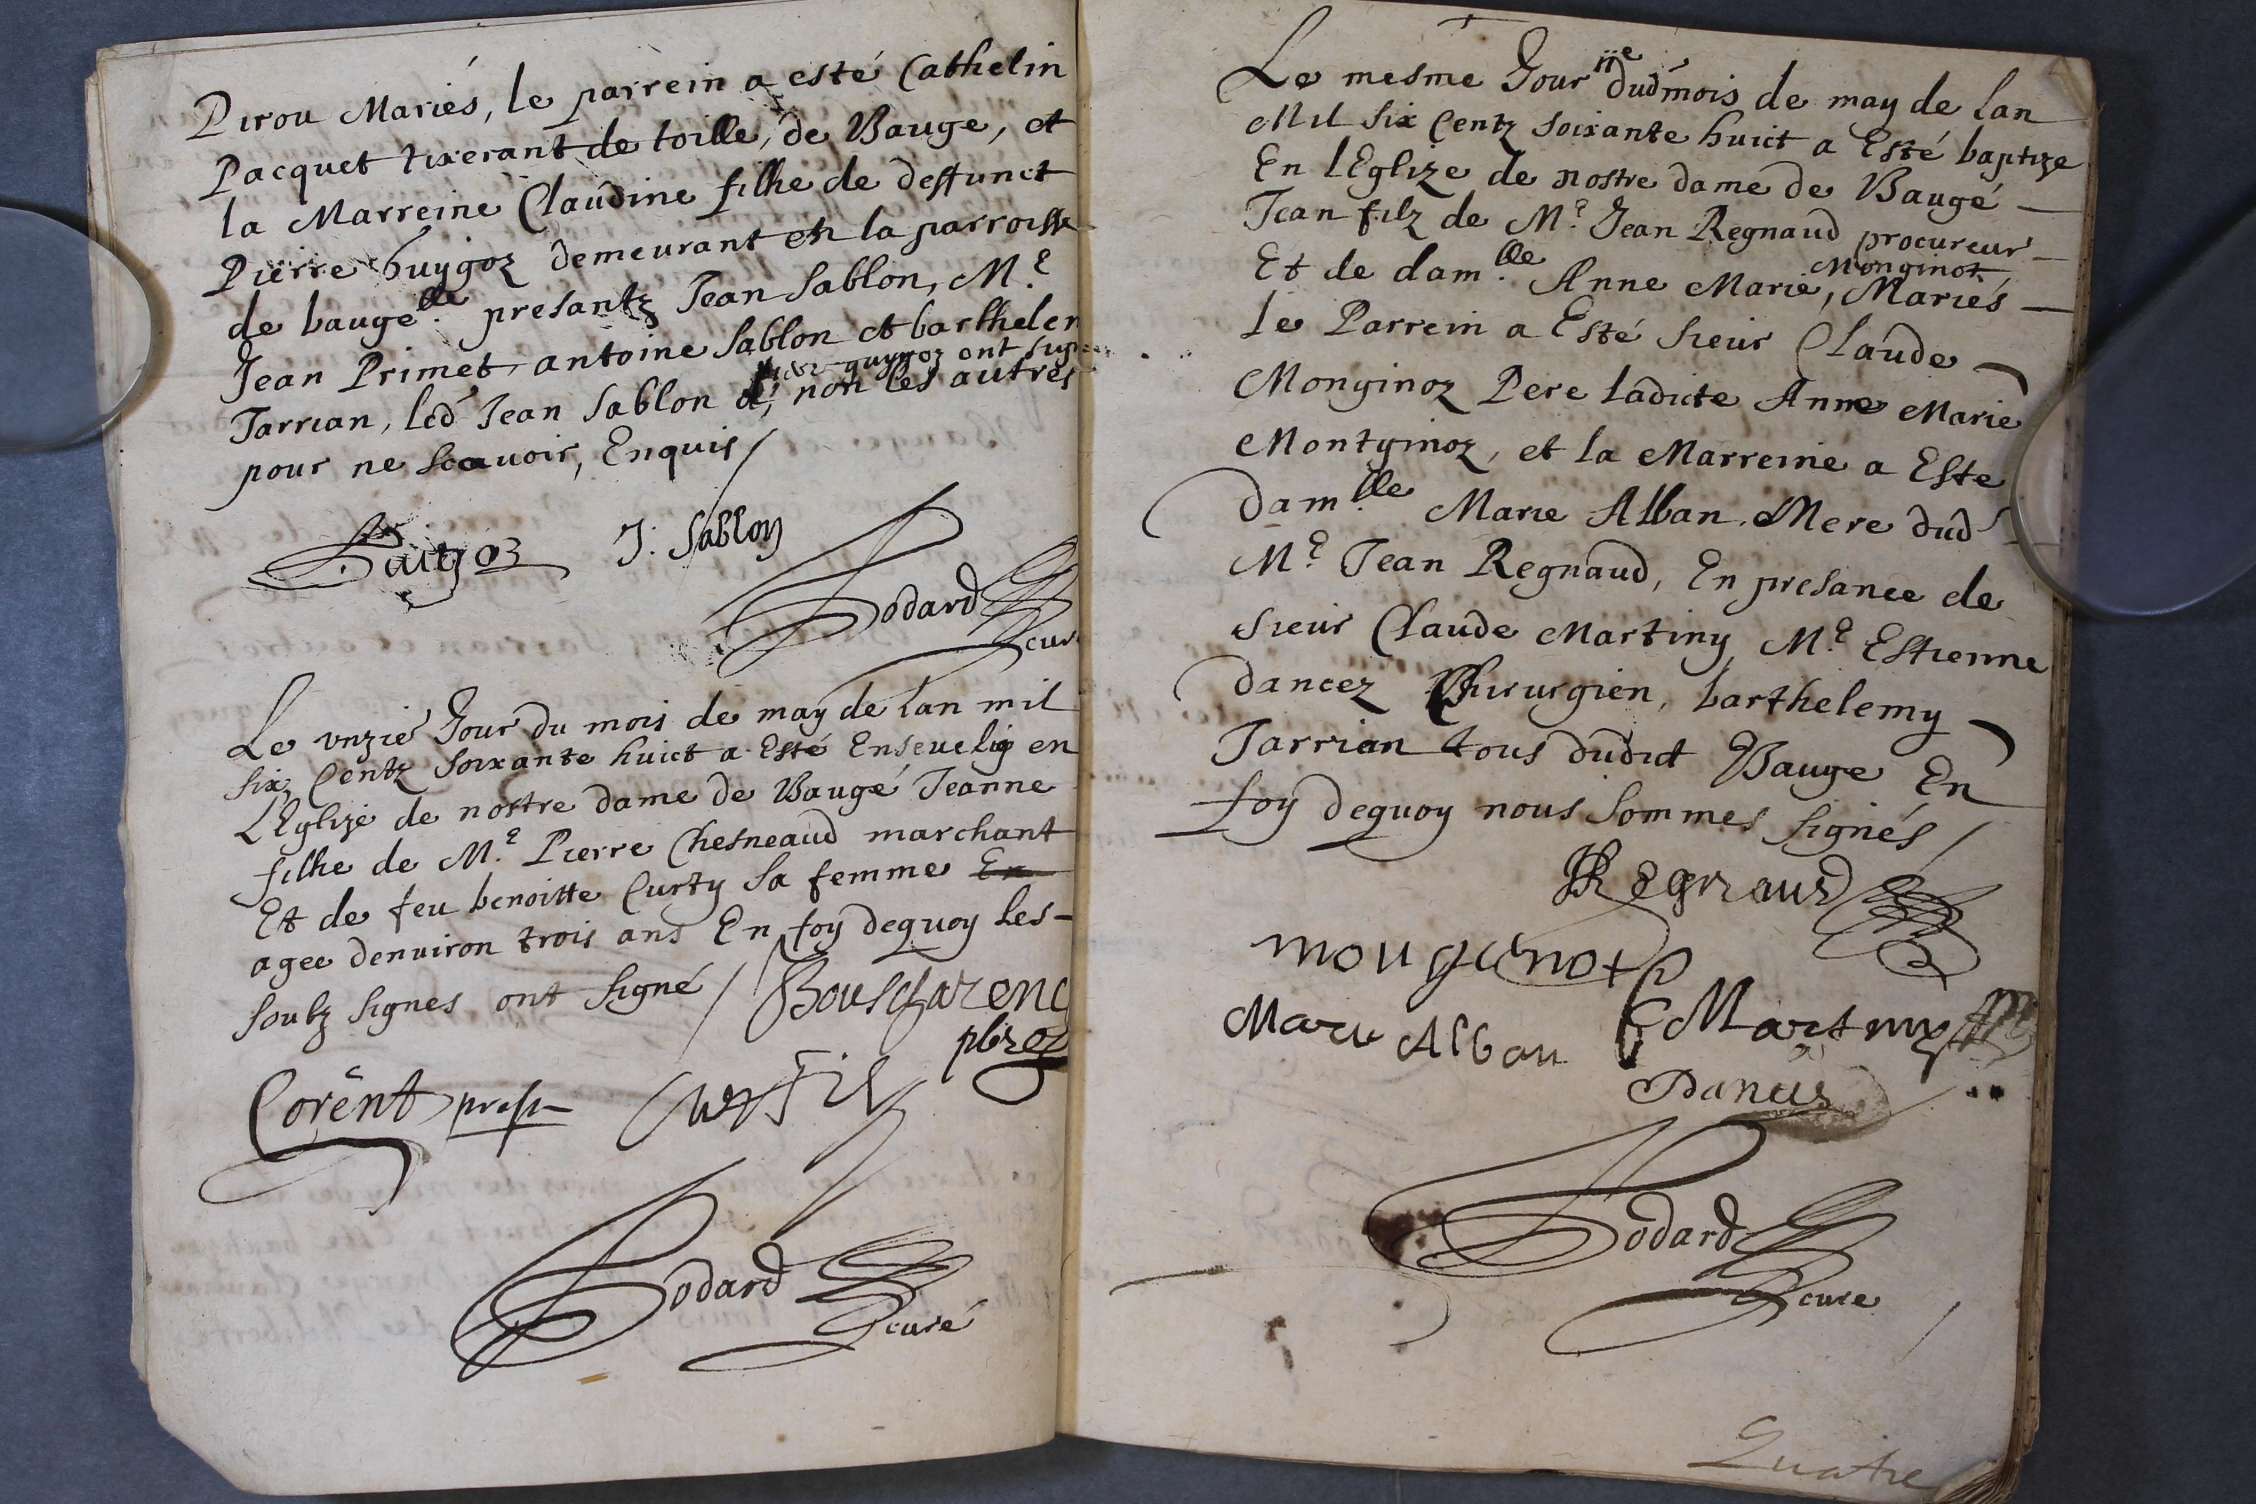 Pirou Mariés, le parrein a esté Cathelin
Pacquet tixerant de toille, de Baugé, et
la Marreine Claudine filhe de deffunct
Pierre huygoz demeurant en la parroisse
de baugé presantz Jean Sablon, M.e
Jean Primet, antoine Sablon et barthelem
guygoz ont signe
Tarrian, led Jean Sablon et, non les autres
pour ne scavoir, Enquis /
J: Sablon
Godard
cure
Le vnzie Jour du mois de may de lan mil
six Centz soixante huict a Esté Enseuelie en
LEglize de nostre dame de Baugé Jeanne
filhe de M.e Pierre Chesneaud marchant
Et de feu benoitte Curty sa femme En
agee denuiron trois ans En foy dequoy les-
soubz signes ont signé /
Bouscharenc
pbre
Corent
Godard
curé
Le mesme Jour iie dud mois de may de lan
Mil six Centz soixante huict a Esté baptize
En lEglize de nostre dame de Baugé —
Jean filz de M.e Jean Regnaud procureur —
Monginot
Et de dam.lle Anne Marie, Mariés —
le Parrein a Esté sieur Claude —
Monginoz Pere ladicte Anne Marie
Montginoz, et la Marreine a Este
dam.lle Marie Alban Mere dud
M.e Jean Regnaud, En presance de
sieur Claude Martiny M.e Estienne
dancez Chirurgien, barthelemy
Tarrian tous dudict Bauge En
foy dequoy nous sommes signés /
JRegnaud
mougenot
Marie Alban
C Martiny
Danciz
Godard
cure
Quatre